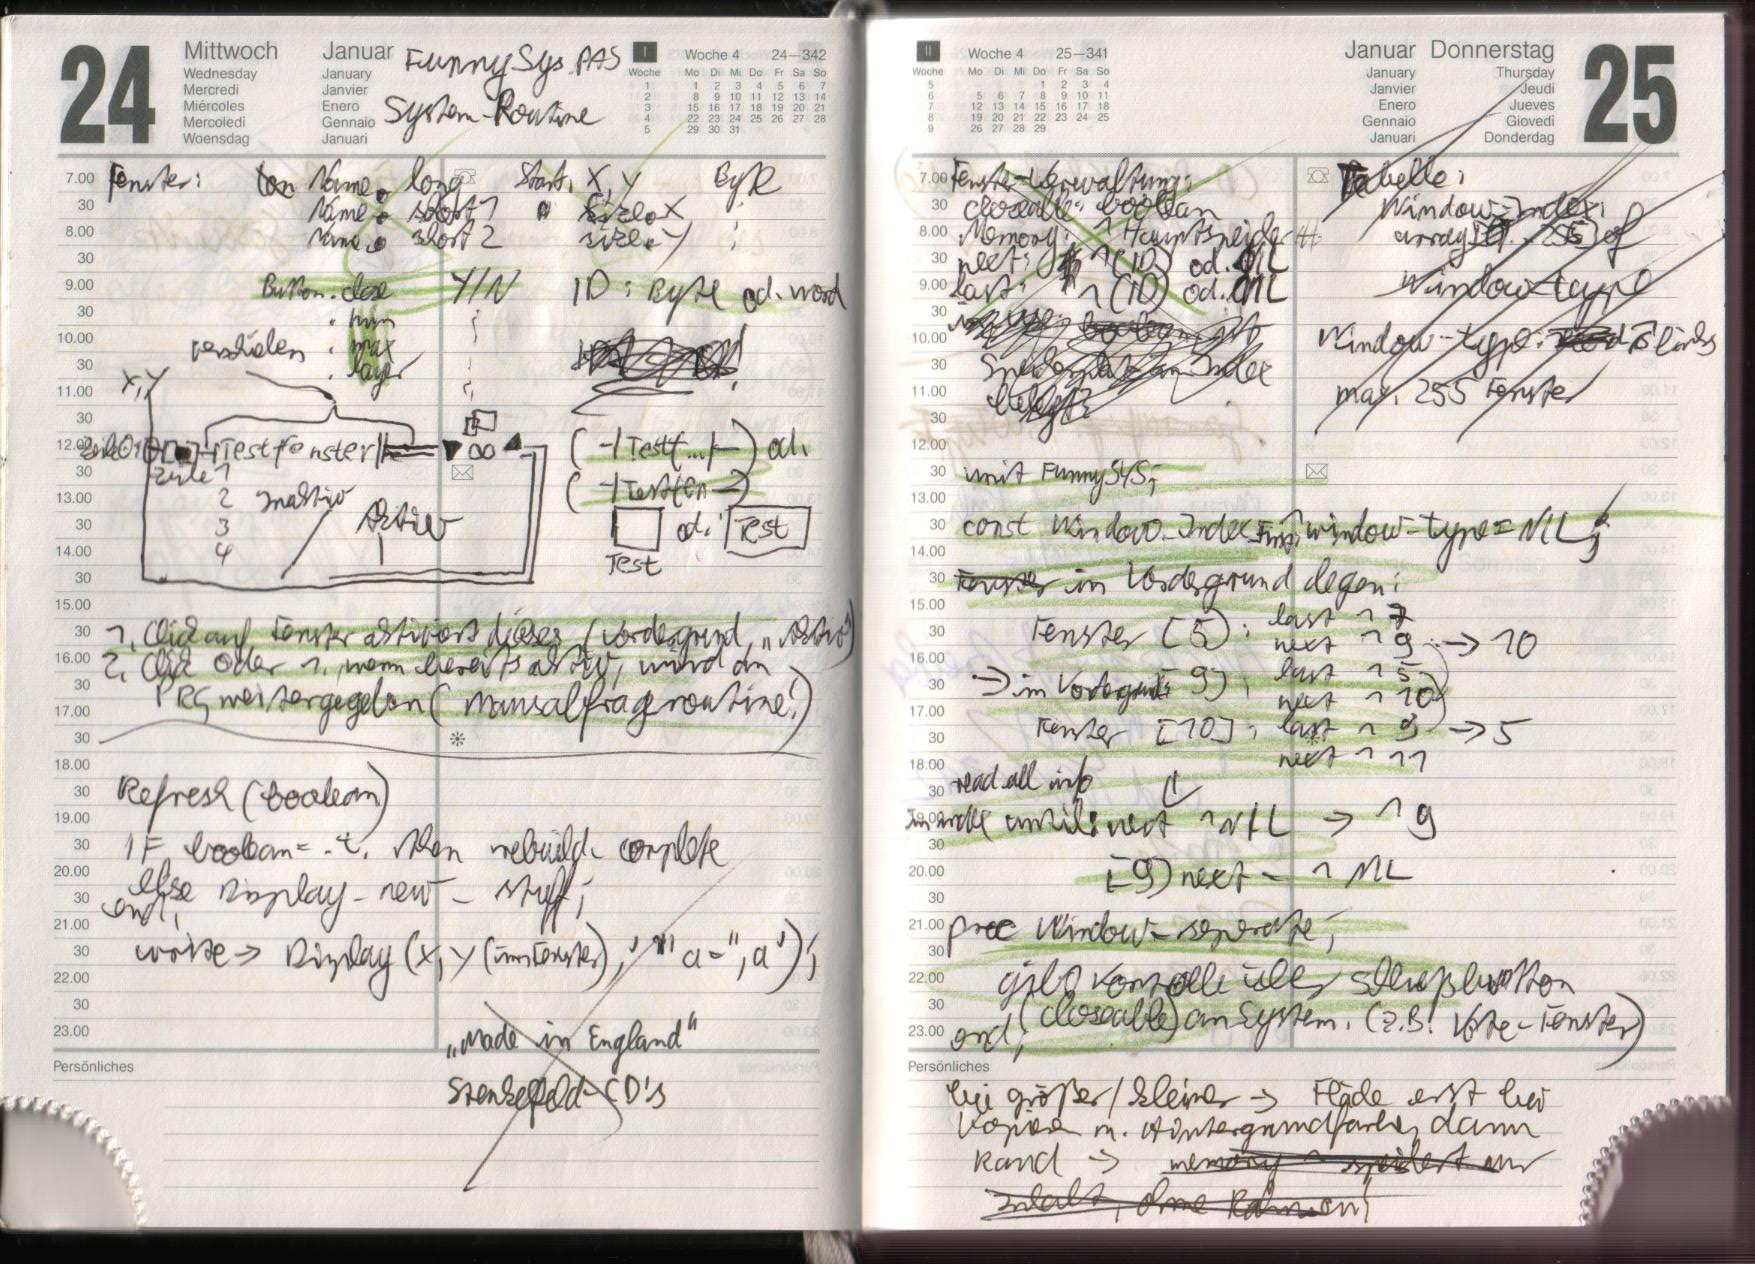 24
Mittwoch Januar
Wednesday January
Mercredi Janvier
Miércoles Enero
Mercoledi Gennaio
Woensdag Januari
FunnySys.PAS
System-Routine
I Woche 4 24—342
Woche Mo Di Mi Do Fr Sa So
1 1 2 3 4 5 6 7
2 8 9 10 11 12 13 14
3 15 16 17 18 19 20 21
4 22 23 24 25 26 27 28
5 29 30 31
7.00 Fenster: Name. long Start. X, Y Byte
30 Name. short 1 size. X
8.00 Name. short 2 size. Y
30
9.00 Button. close Y/N ID: Byte od. word
30
10.00 verschieben . max
30 . layer
X, Y
11.00
30
12.00 Testfenster (-|Test(...|-) od.
30 Zeile 1 (-|Testfen→)
13.00 2 inaktiv
30 3 Aktiv od. Test
14.00 4
30 Test
15.00
30 1. Click auf Fenster aktiviert dieses (Vordergrund, "Aktiv")
16.00 2. Click oder 1., wenn bereits aktiv, wird an
30 PRG weitergegeben (Mausabfrageroutine!)
17.00
30
18.00
30 Refresh (boolean)
19.00
30 IF boolean = .t. then rebuild complete
20.00
30 else Display_new_stuff;
end;
21.00
30 write → Display (X, Y (im Fenster), "a=", a');
22.00
30
23.00 „Made in England"
Persönliches
CD's
II Woche 4 25—341
Woche Mo Di Mi Do Fr Sa So
5 1 2 3 4
6 5 6 7 8 9 10 11
7 12 13 14 15 16 17 18
8 19 20 21 22 23 24 25
9 26 27 28 29
Januar Donnerstag
January Thursday
Janvier Jeudi
Enero Jueves
Gennaio Giovedi
Januari Donderdag
25
7.00 Fenster-Verwaltung: Tabelle:
30 closeable: boolean Window-Index:
8.00 Memory: ^Hauptspeicher array [0..255] of
30 next: ^(ID) od. NIL
9.00 last: ^(ID) od. NIL Window-type
30
10.00 Window-type:
30 Speicherplatz an Index
11.00 belegt? max. 255 Fenster
30
12.00
30 unit FunnySYS;
13.00
30 const Window_Index_First: window-type = NIL;
14.00
30 Fenster in Vordergrund legen:
15.00 last ^ 7
30 Fenster [5]: next ^ 9 → 10
16.00 last ^ 5
30 → im Vordergrund 9] next ^ 10
17.00
30 Fenster [10]: last ^ 9 → 5
18.00 next ^ 11
30 read all info
19.00 until next ^NIL → ^9
30
20.00 [9] next = ^NIL
30
21.00 proc Window-seperate;
30
22.00 gibt Kontrolle über
30 (closeable) an System. (z.B. Vote-Fenster)
23.00 end;
Persönliches
bei größer/kleiner → Fläche erst bei
kopieren m. Hintergrundfarbe, dann
Rand → memory ^ speichert nur
Inhalt, ohne Rahmen!